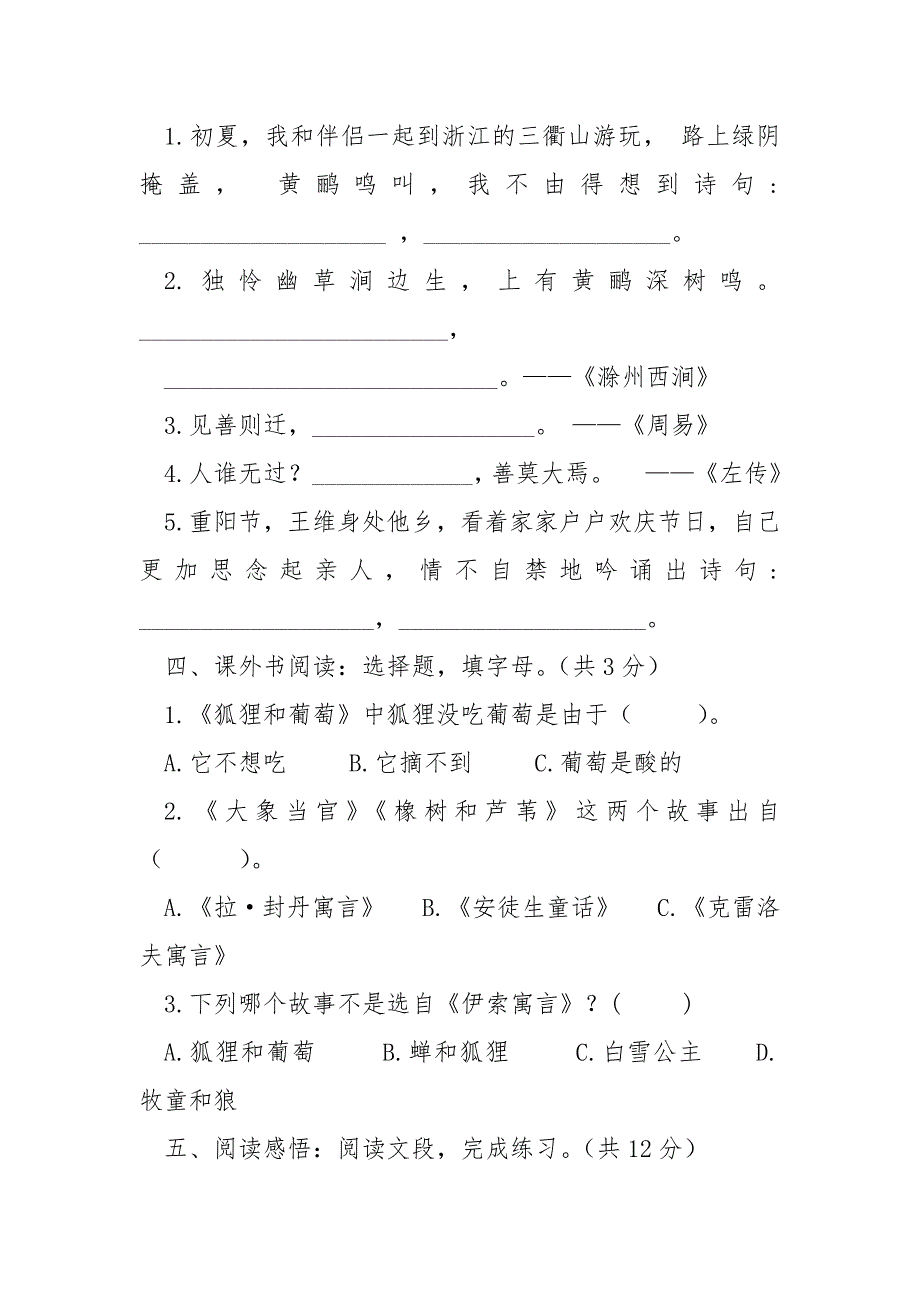 1.初夏，我和伴侣一起到浙江的三衢山游玩， 路上绿阴
掩盖， 黄鹂鸣叫，我不由得想到诗句：
____________________ ，____________________。
2.独怜幽草涧边生，上有黄鹂深树鸣。
_________________________，
___________________________。——《滁州西涧》
3.见善则迁，__________________。 ——《周易》
4.人谁无过？_____________，善莫大焉。 ——《左传》
5.重阳节，王维身处他乡，看着家家户户欢庆节日，自己
更加思念起亲人，情不自禁地吟诵出诗句：
___________________，____________________。
四、课外书阅读：选择题，填字母。（共3分）
1.《狐狸和葡萄》中狐狸没吃葡萄是由于（ ）。
A.它不想吃 B.它摘不到 C.葡萄是酸的
2.《大象当官》《橡树和芦苇》这两个故事出自
（ ）。
A.《拉·封丹寓言》 B.《安徒生童话》 C.《克雷洛
夫寓言》
3.下列哪个故事不是选自《伊索寓言》？( )
A.狐狸和葡萄 B.蝉和狐狸 C.白雪公主 D.
牧童和狼
五、阅读感悟：阅读文段，完成练习。（共12分）